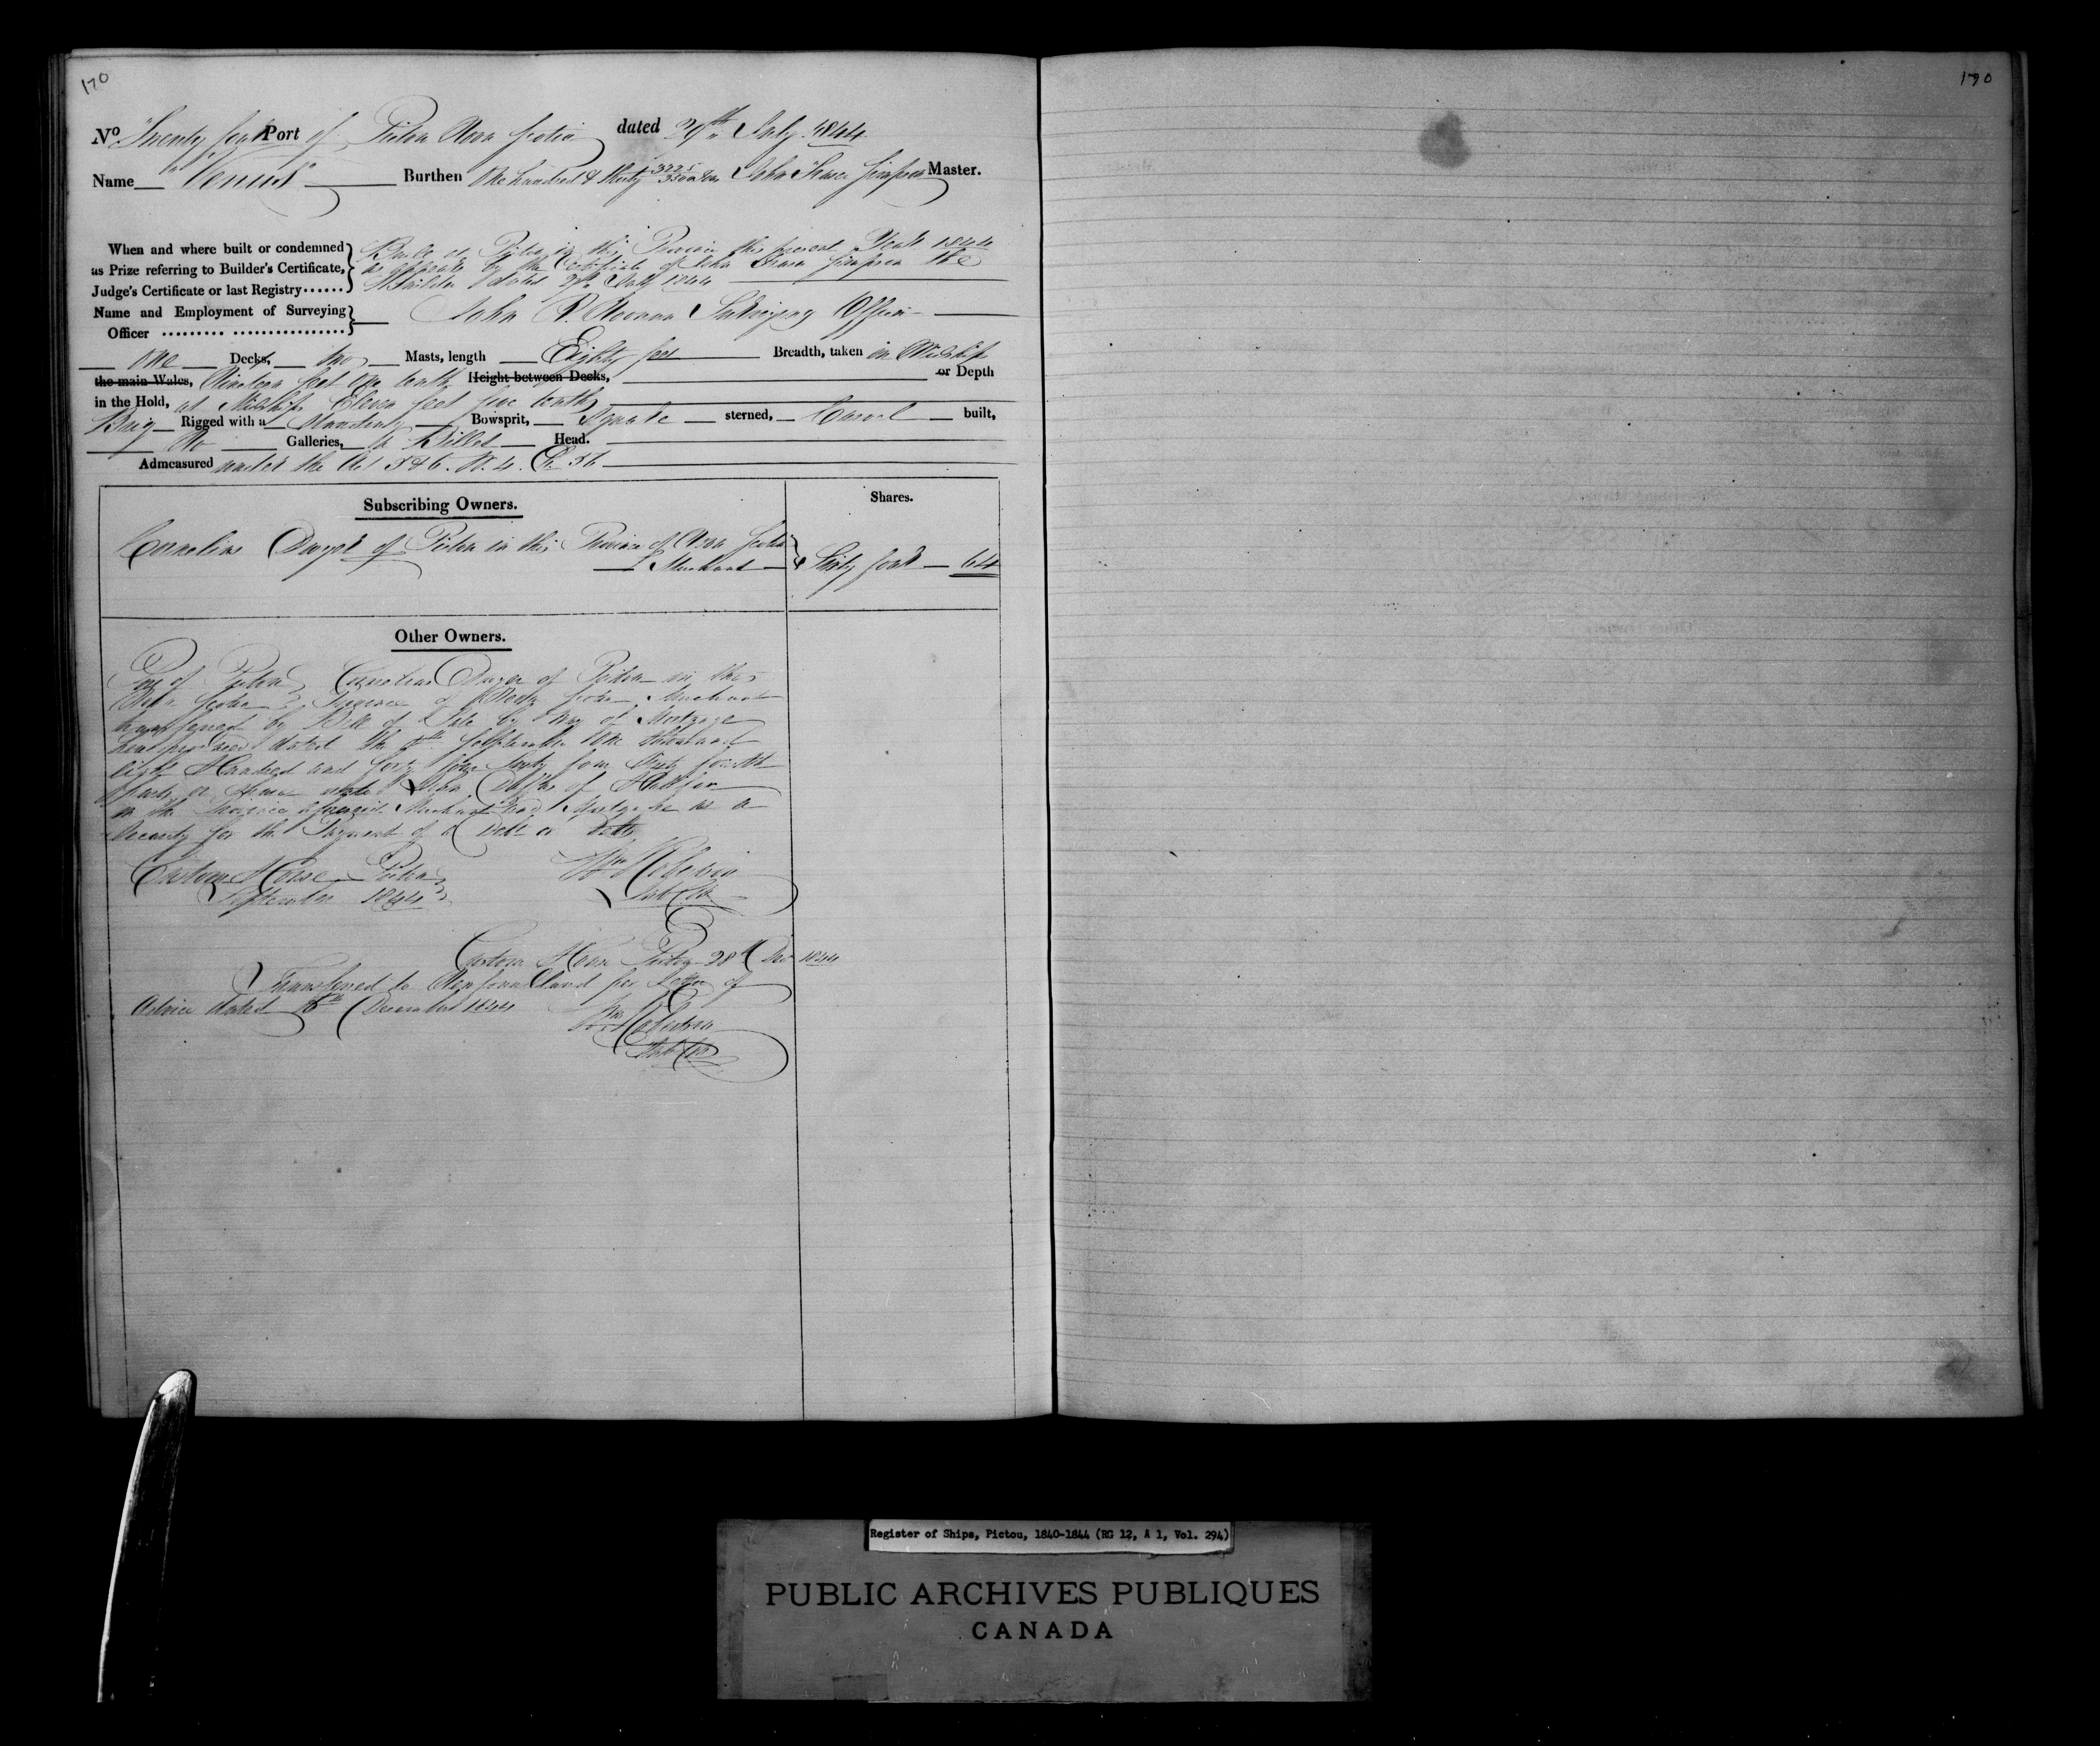 170
170
No Twenty four Port of Pictou Nova Scotia dated 29th July 1844
Name "Venus" Burthen One hundred & thirty 3325/3500 Tons John Fraser Simpson Master.
When and where built or condemned as Prize referring to Builder's Certificate, Judge's Certificate or last Registry......
Built at Pictou in this Province this present Year 1844
as appears by the Certificate of John Fraser Simpson the
Builder dated 27th July 1844
Name and Employment of Surveying Officer ......... .................
John Surveying Officer
One Decks, two Masts, length Eighty feet Breadth, taken in Midships
the main Wales, Nineteen feet one tenth Height between Decks, or Depth
in the Hold, at Midships Eleven feet five tenths
Brig Rigged with a Standing Bowsprit, Square sterned, Carvel built,
No Galleries, a Billet Head.
Admeasured under the Act 5 & 6. W. 4. C. 56
Subscribing Owners.
Shares.
Cornelius Dwyer of Pictou in this Province of Nova Scotia
Merchant
Sixty four 64
Other Owners.
Port of Pictou Cornelius Dwyer of Pictou in the
Nova Scotia Province of Nova Scotia Merchant
transferred by Bill of Sale by Way of Mortgage
dated the September One thousand
eight Hundred and forty four Sixty four Sixty fourth
parts or shares unto John of Halifax
in the Province aforesaid Merchant Mortgage as a
Security for the Payment of a Debt or Debts
Custom House Pictou
September 1844
Wm Robertson
Sub Col
Custom House Pictou 28th Dec 1844
Transferred to Newfoundland per Letter of
Advice dated December 1844
Wm Robertson
Sub Col
Register of Ships, Pictou, 1840-1844 (RG 12, A 1, Vol. 294)
PUBLIC ARCHIVES PUBLIQUES
CANADA